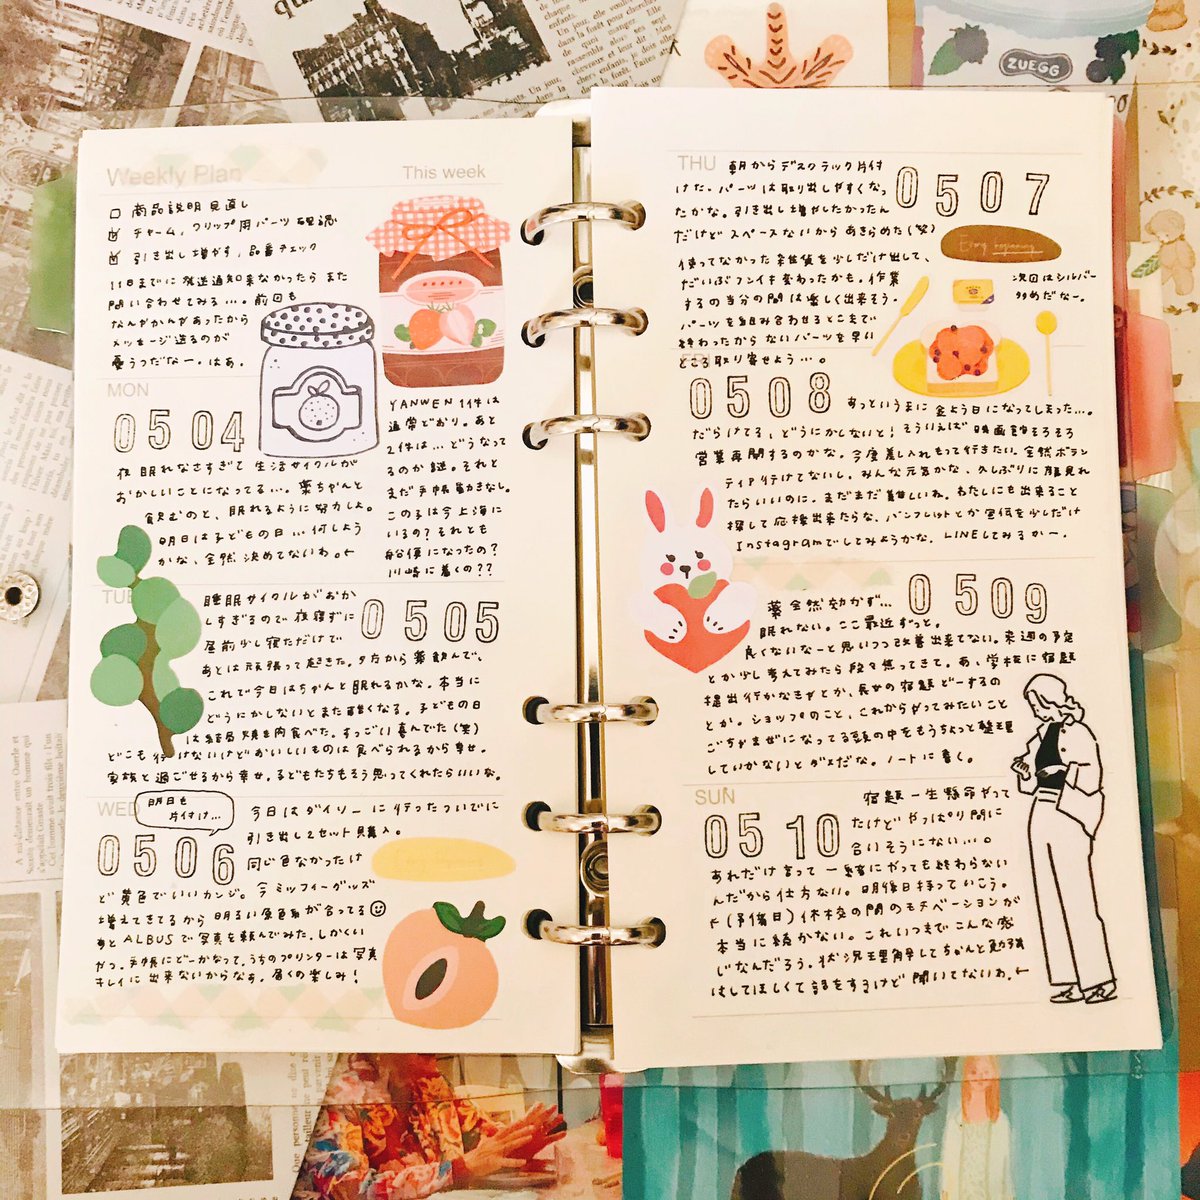 Weekly Plan
This week
商品説明見直し
チャーム, クリップ用パーツ確認
引き出し増やす, 品番チェック
11日までに発送通知来なかったらまた
問い合わせてみる…。前回も
なんやかんやあったから
メッセージ送るのが
憂うつだなー。はあ。
MON
0504
夜眠れなさすぎて生活サイクルが
おかしいことになってる…。薬ちゃんと
飲むのと、眠れるように努力しよ。
明日は子どもの日…何しよう
かな、全然決めてないわ。←
YANWEN 1件は
通常どおり。あと
2件は…どうなって
るのか謎。それと
まだ手帳動きなし。
この子は今上海に
いるの?それとも
船便になったの?
川崎に着くの??
TUE
0505
睡眠サイクルがおか
しすぎるので夜寝ずに
昼前少し寝ただけで
あとは頑張って起きた。夕方から薬飲んで、
これで今日はちゃんと眠れるかな。本当に
どうにかしないとまた酷くなる。子どもの日
は結局焼き肉食べた。すっごい喜んでた(笑)
どこも行けないけどおいしいものは食べられるから幸せ。
家族と過ごせるから幸せ。子どもたちもそう思ってくれたらいいな。
WED
明日も
片付け…
0506
今日はダイソーに行ったついでに
引き出し2セット購入。
同じ色なかったけ
ど黄色でいいカンジ。今ミッフィーグッズ
増えてきてるから明るい原色系が合ってる
あとALBUSで写真を頼んでみた。しかくい
やつ。手帳にどーかなって。うちのプリンターは写真
キレイに出来ないからなぁ。届くの楽しみ!
THU
0507
朝からデスクラック片付
けた。パーツは取り出しやすくなっ
たかな。引き出し増やしたかったん
だけどスペースないからあきらめた(笑)
使ってなかった雑貨を少しだけ出して、
だいぶフンイキ変わったかも。作業
するの当分の間は楽しく出来そう。
パーツを組み合わせるとこまで
終わったからないパーツを早い
ところ取り寄せよう…。
次回はシルバー
多めだなー。
FRI
0508
あっというまに金よう日になってしまった…。
だらけてる、どうにかしないと!そういえば映画館そろそろ
営業再開するのかな。今度差し入れもって行きたい。全然ボラン
ティア行けてないし。みんな元気かな、久しぶりに顔見れ
たらいいのに。まだまだ難しいね。わたしにも出来ること
探して応援出来たらな、パンフレットとか宣伝を少しだけ
Instagramでしてみようかな。LINEしてみるかー。
0509
薬全然効かず…
眠れない。ここ最近ずっと。
良くないなーと思いつつ改善出来てない。来週の予定
とか少し考えてみたら段々焦ってきて。あ、学校に宿題
提出行かなきゃとか、長女の宿題どーするの
とか。ショップのこと、これからやってみたいこと
ごちゃまぜになってる頭の中をもうちょっと整理
していかないとダメだな。ノートに書く。
SUN
0510
宿題一生懸命やって
たけどやっぱり間に
合いそうにない…。
あれだけ言って一緒にやっても終わらない
んだから仕方ない。明後日持っていこう。
↑(予備日)休校の間のモチベーションが
本当に続かない。これいつまでこんな感
じなんだろう。状況理解してちゃんと勉強
はしてほしくて話をするけど聞いてないわ。←
ZUEGG